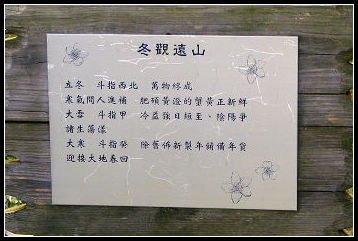 冬觀遠山
立冬 斗指西北 萬物終成
寒氣問人進補 肥碩黃澄的蟹黃正新鮮
大雪 斗指甲 冷益強日短至、陰陽爭
諸生蕩漾
大寒 斗指癸 除舊佈新製年餚備年貨
迎接大地春回